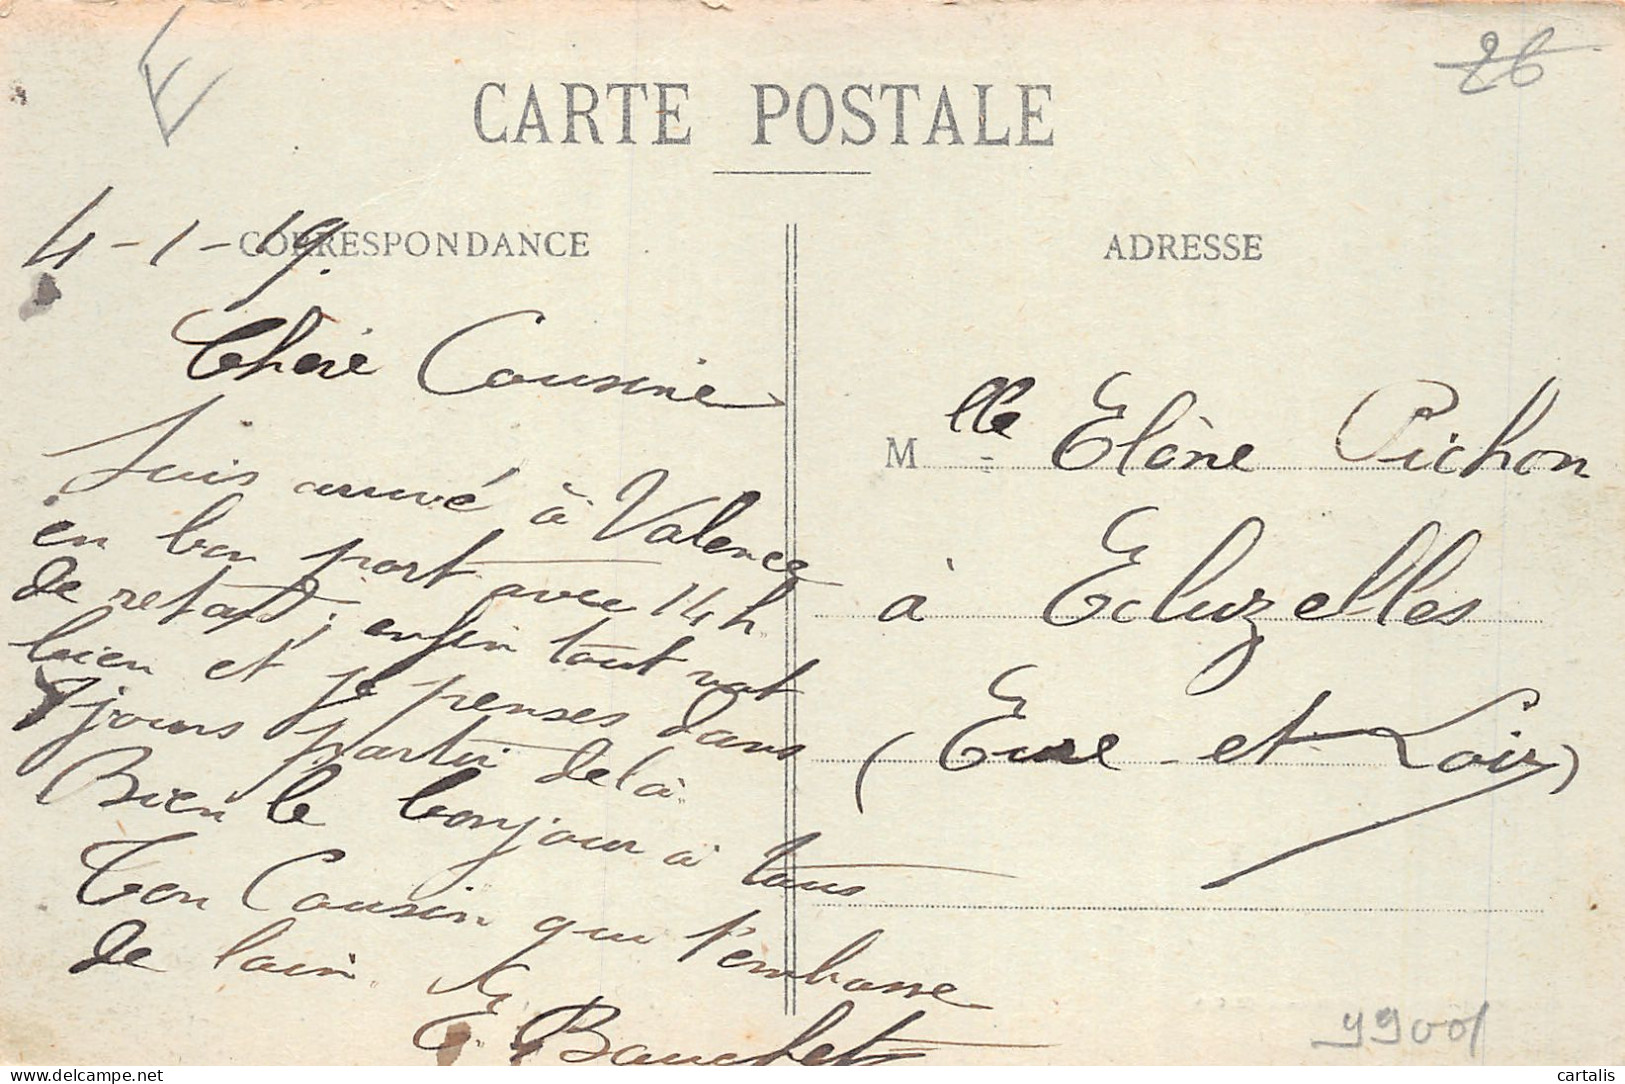 E
26
CARTE POSTALE
CORRESPONDANCE
4-1-19.
Chère Cousine
Suis arrivé à Valence
en bon port avec 14 h
de retard, enfin tout vat
bien et je penses dans
9 jours partir de là
Bien le bonjour à tous
Ton Cousin qui t'embrasse
de loin.
E. Bauchet
ADRESSE
Mlle Elène Pichon
à Ecluzelles
(Eure-et-Loir)
99001
delcampe.net
cartalis